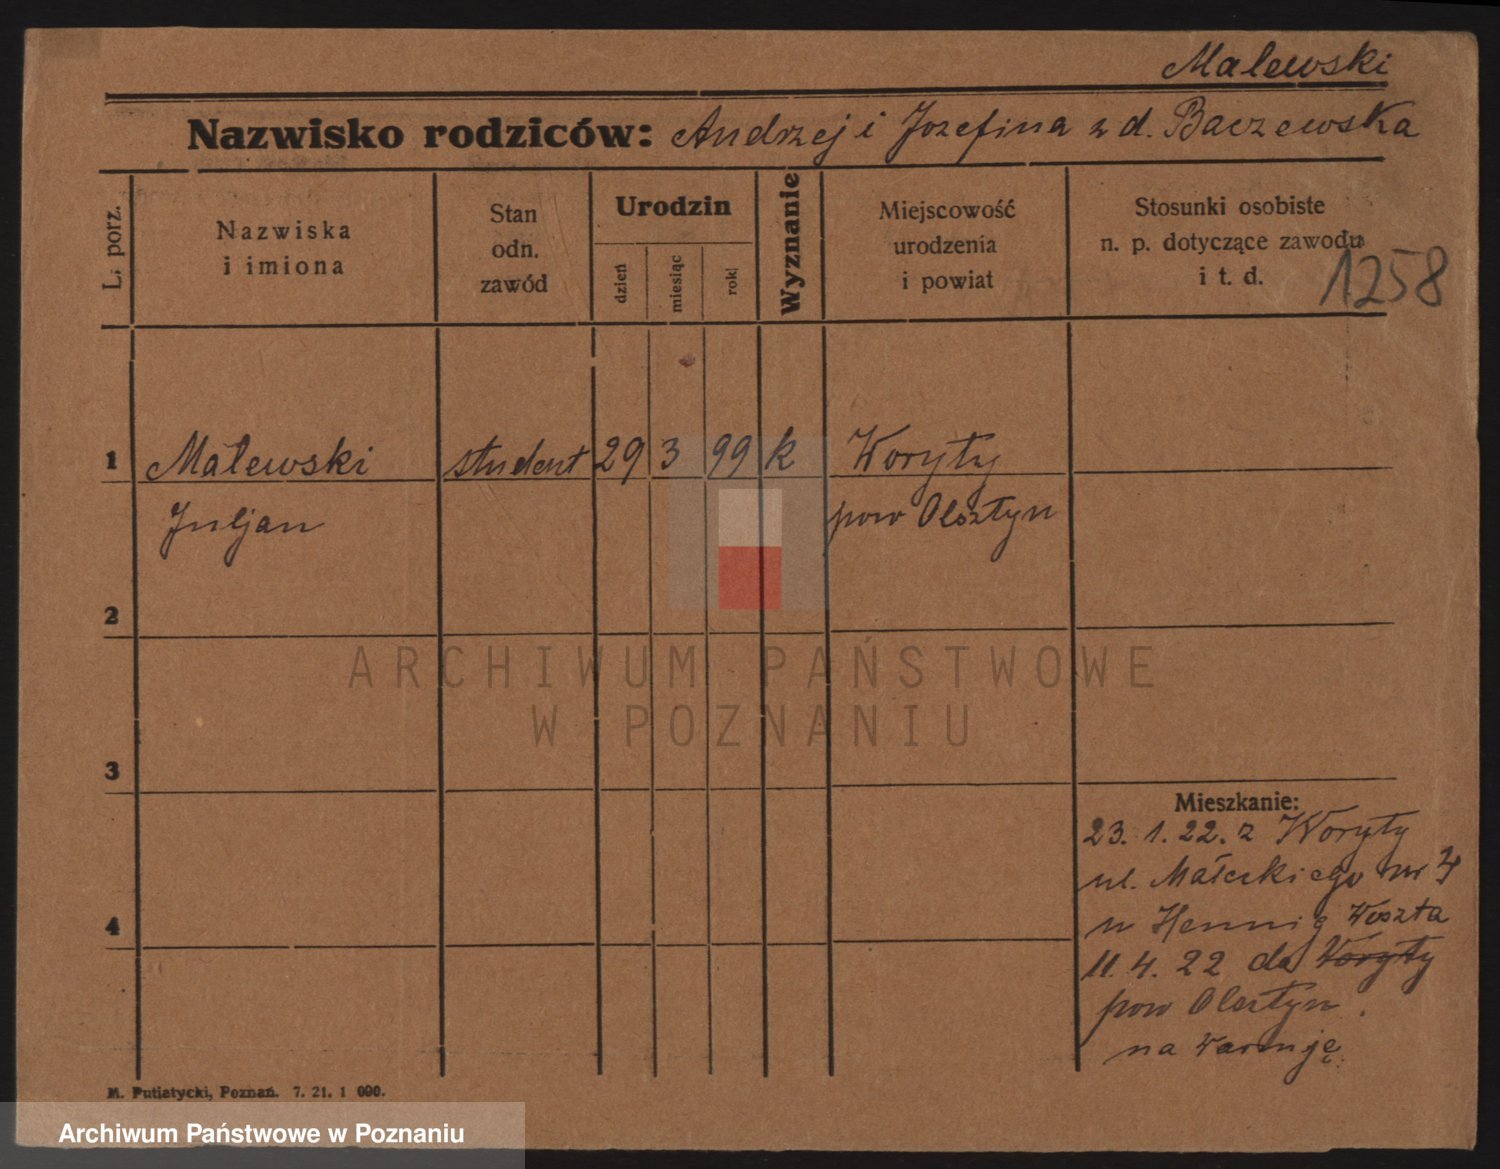 Malewski
Nazwisko rodziców: Andrzej i Jozefina z d. Baczewska
L. porz.
Nazwiska
i imiona
Stan
odn.
zawód
Urodzin
dzień
miesiąc
rok
Wyznanie
Miejscowość
urodzenia
i powiat
Stosunki osobiste
n. p. dotyczące zawodu
i t. d.
1258
1 Malewski student 29 3 99 k Woryty
Juljan pow Olsztyn
2
3
4
Mieszkanie:
23. 1. 22. z Woryty
ul. Małeckiego nr
u Hennig
11. 4. 22 do Woryty
pow Olsztyn.
na Warmję.
M. Putiatycki, Poznań. 7. 21. 1 000.
ARCHIWUM PAŃSTWOWE
W POZNANIU
Archiwum Państwowe w Poznaniu